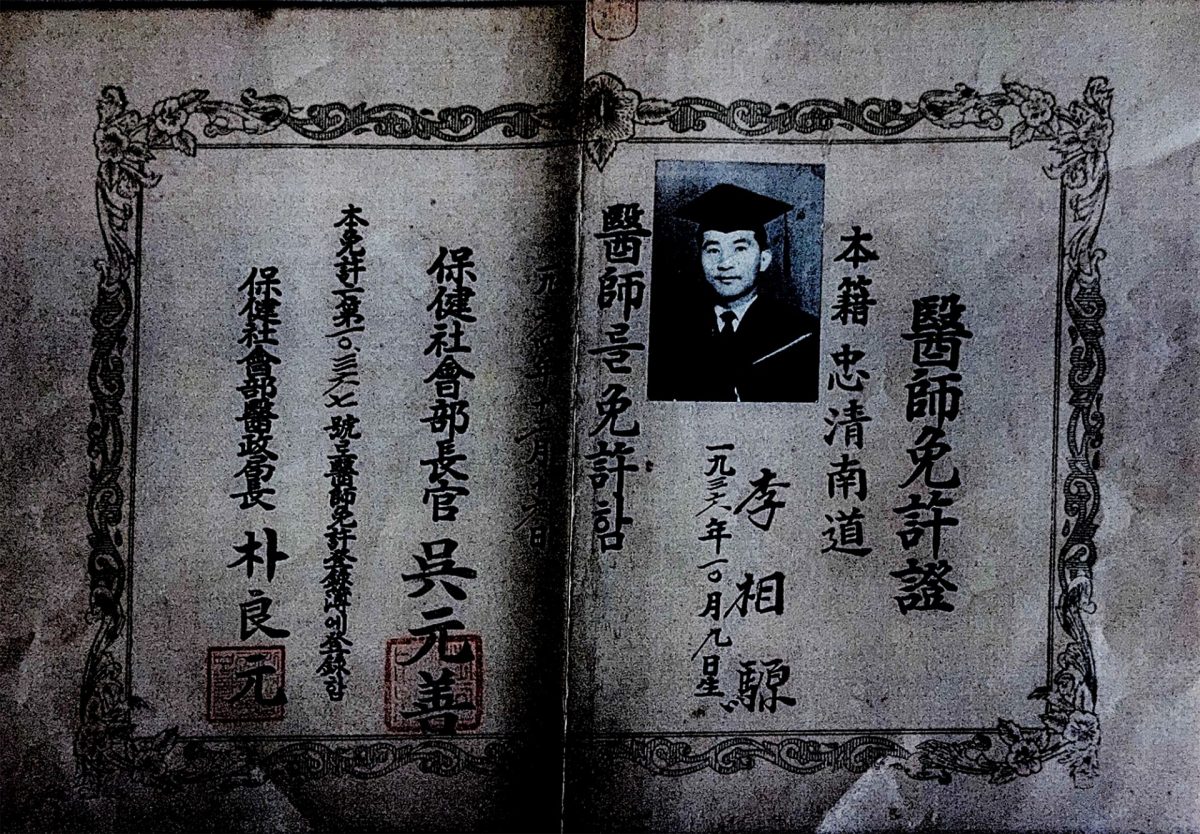 醫師免許證
本籍 忠清南道
李相騵
一九三六年一〇月九日生
醫師를免許함
年 月 日
保健社會部長官 吳元善
本免許는第一〇.三六七號로醫師免許登錄簿에登錄함
保健社會部醫政局長 朴良元